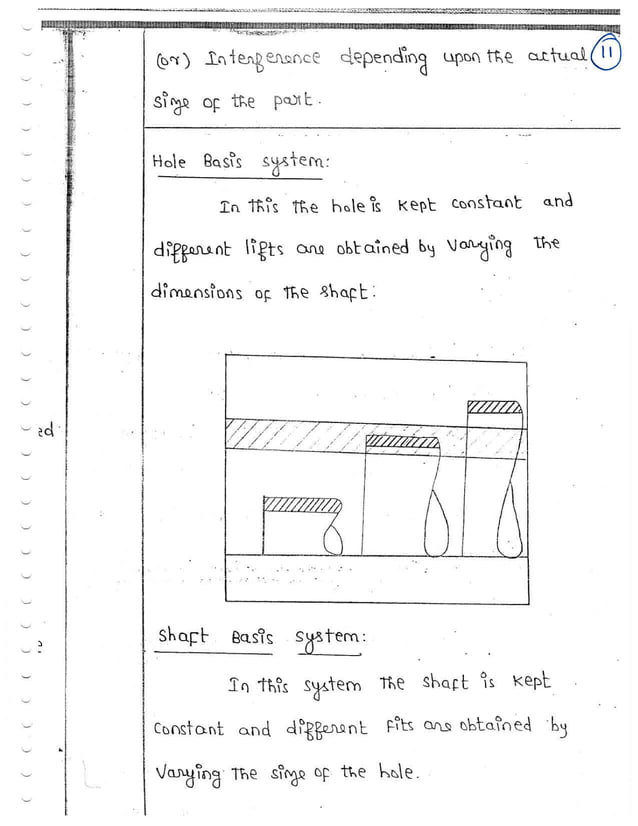 (or) Interference depending upon the actual 11
size of the part.
Hole Basis system:
In this the hole is kept constant and
different lifts are obtained by varying the
dimensions of the shaft:
ed
Shaft Basis system:
In this system the shaft is kept
constant and different fits are obtained by
varying the size of the hole.